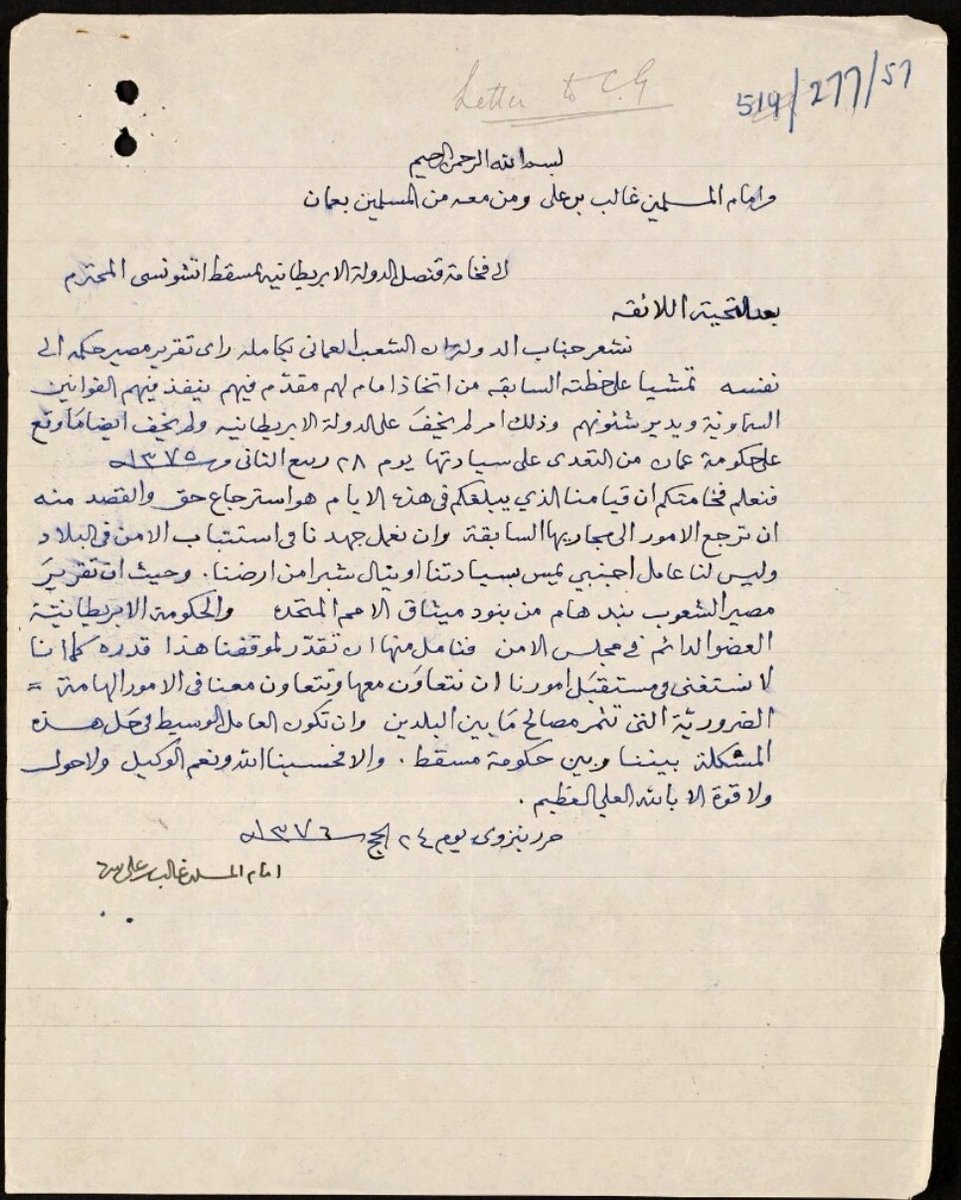 Letter to C.G
519/277/57
بسم الله الرحمن الرحيم
من امام المسلمين غالب بن على ومن معه من المسلمين بعمان
الى فخامة قنصل الدولة الابريطانيه بمسقط المحترم
بعد التحية اللائقه
نشعر جناب الدولة ان الشعب العمانى بكامله راى تقرير مصير حكمه الى
نفسه تمشيا على خطته السابقه من اتخاذ امام لهم مقدّم فيهم ينفذ فيهم القوانين
السماوية ويدير شئونهم وذلك امر لم يخفَ على الدولة الابريطانيه ولم يخف ايضا مَا وقع
على حكومة عمان من التعدى على سيادتها يوم ٢٨ ربيع الثانى سنة ١٣٧٥هـ
فنعلم فخامتكم ان قيامنا الذي يبلغكم فى هذه الايام هو استرجاع حق والقصد منه
ان ترجع الامور الى مجاريها السابقة وان نعمل جهدنا فى استتباب الامن فى البلاد
وليس لنا عامل اجنبي يمس بسيادتنا او ينال شبرا من ارضنا. وحيث ان تقريرَ
مصير الشعوب بند هام من بنود ميثاق الامم المتحده والحكومة الابريطانيّة
العضو الدائم فى مجلس الامن فنامل منها ان تقدّر لموقفنا هذا قدره كما اننا
لا نستغنى فى مستقبَل امورنا ان نتعاوَن معها وتتعاون معنا فى الامور الهامة =
الضروريّة التى تثمر مصالح مَا بين البلدين وان تكون العامل الوسيط فى حَل هذه
المشكلة بيننا وبين حكومة مسقط. والا فحسبنا الله ونعم الوكيل ولا حول
ولا قوة الا بالله العلي العظيم.
حرر بنزوى يوم ٢٤ الحج سنة ١٣٧٦هـ
امام المسلمين غالب بن على بيده